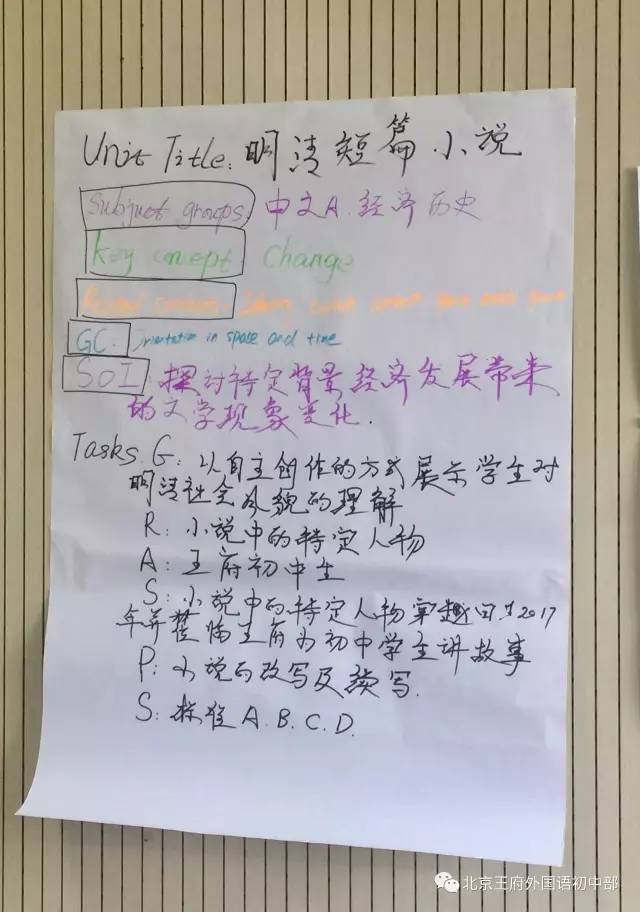 Unit Title: 明清短篇小说
Subject groups: 中文A. 经济 历史
Key concept: Change
Related concepts:
GC. Orientation in space and time
SOI: 探讨特定背景经济发展带来
的文学现象变化.
Tasks G: 以自主创作的方式展示学生对
明清社会风貌的理解
R: 小说中的特定人物
A: 王府初中生
S: 小说中的特定人物穿越回到2017
年并莅临王府为初中学生讲故事
P: 小说的改写及续写.
S: 标准A.B.C.D.
北京王府外国语初中部